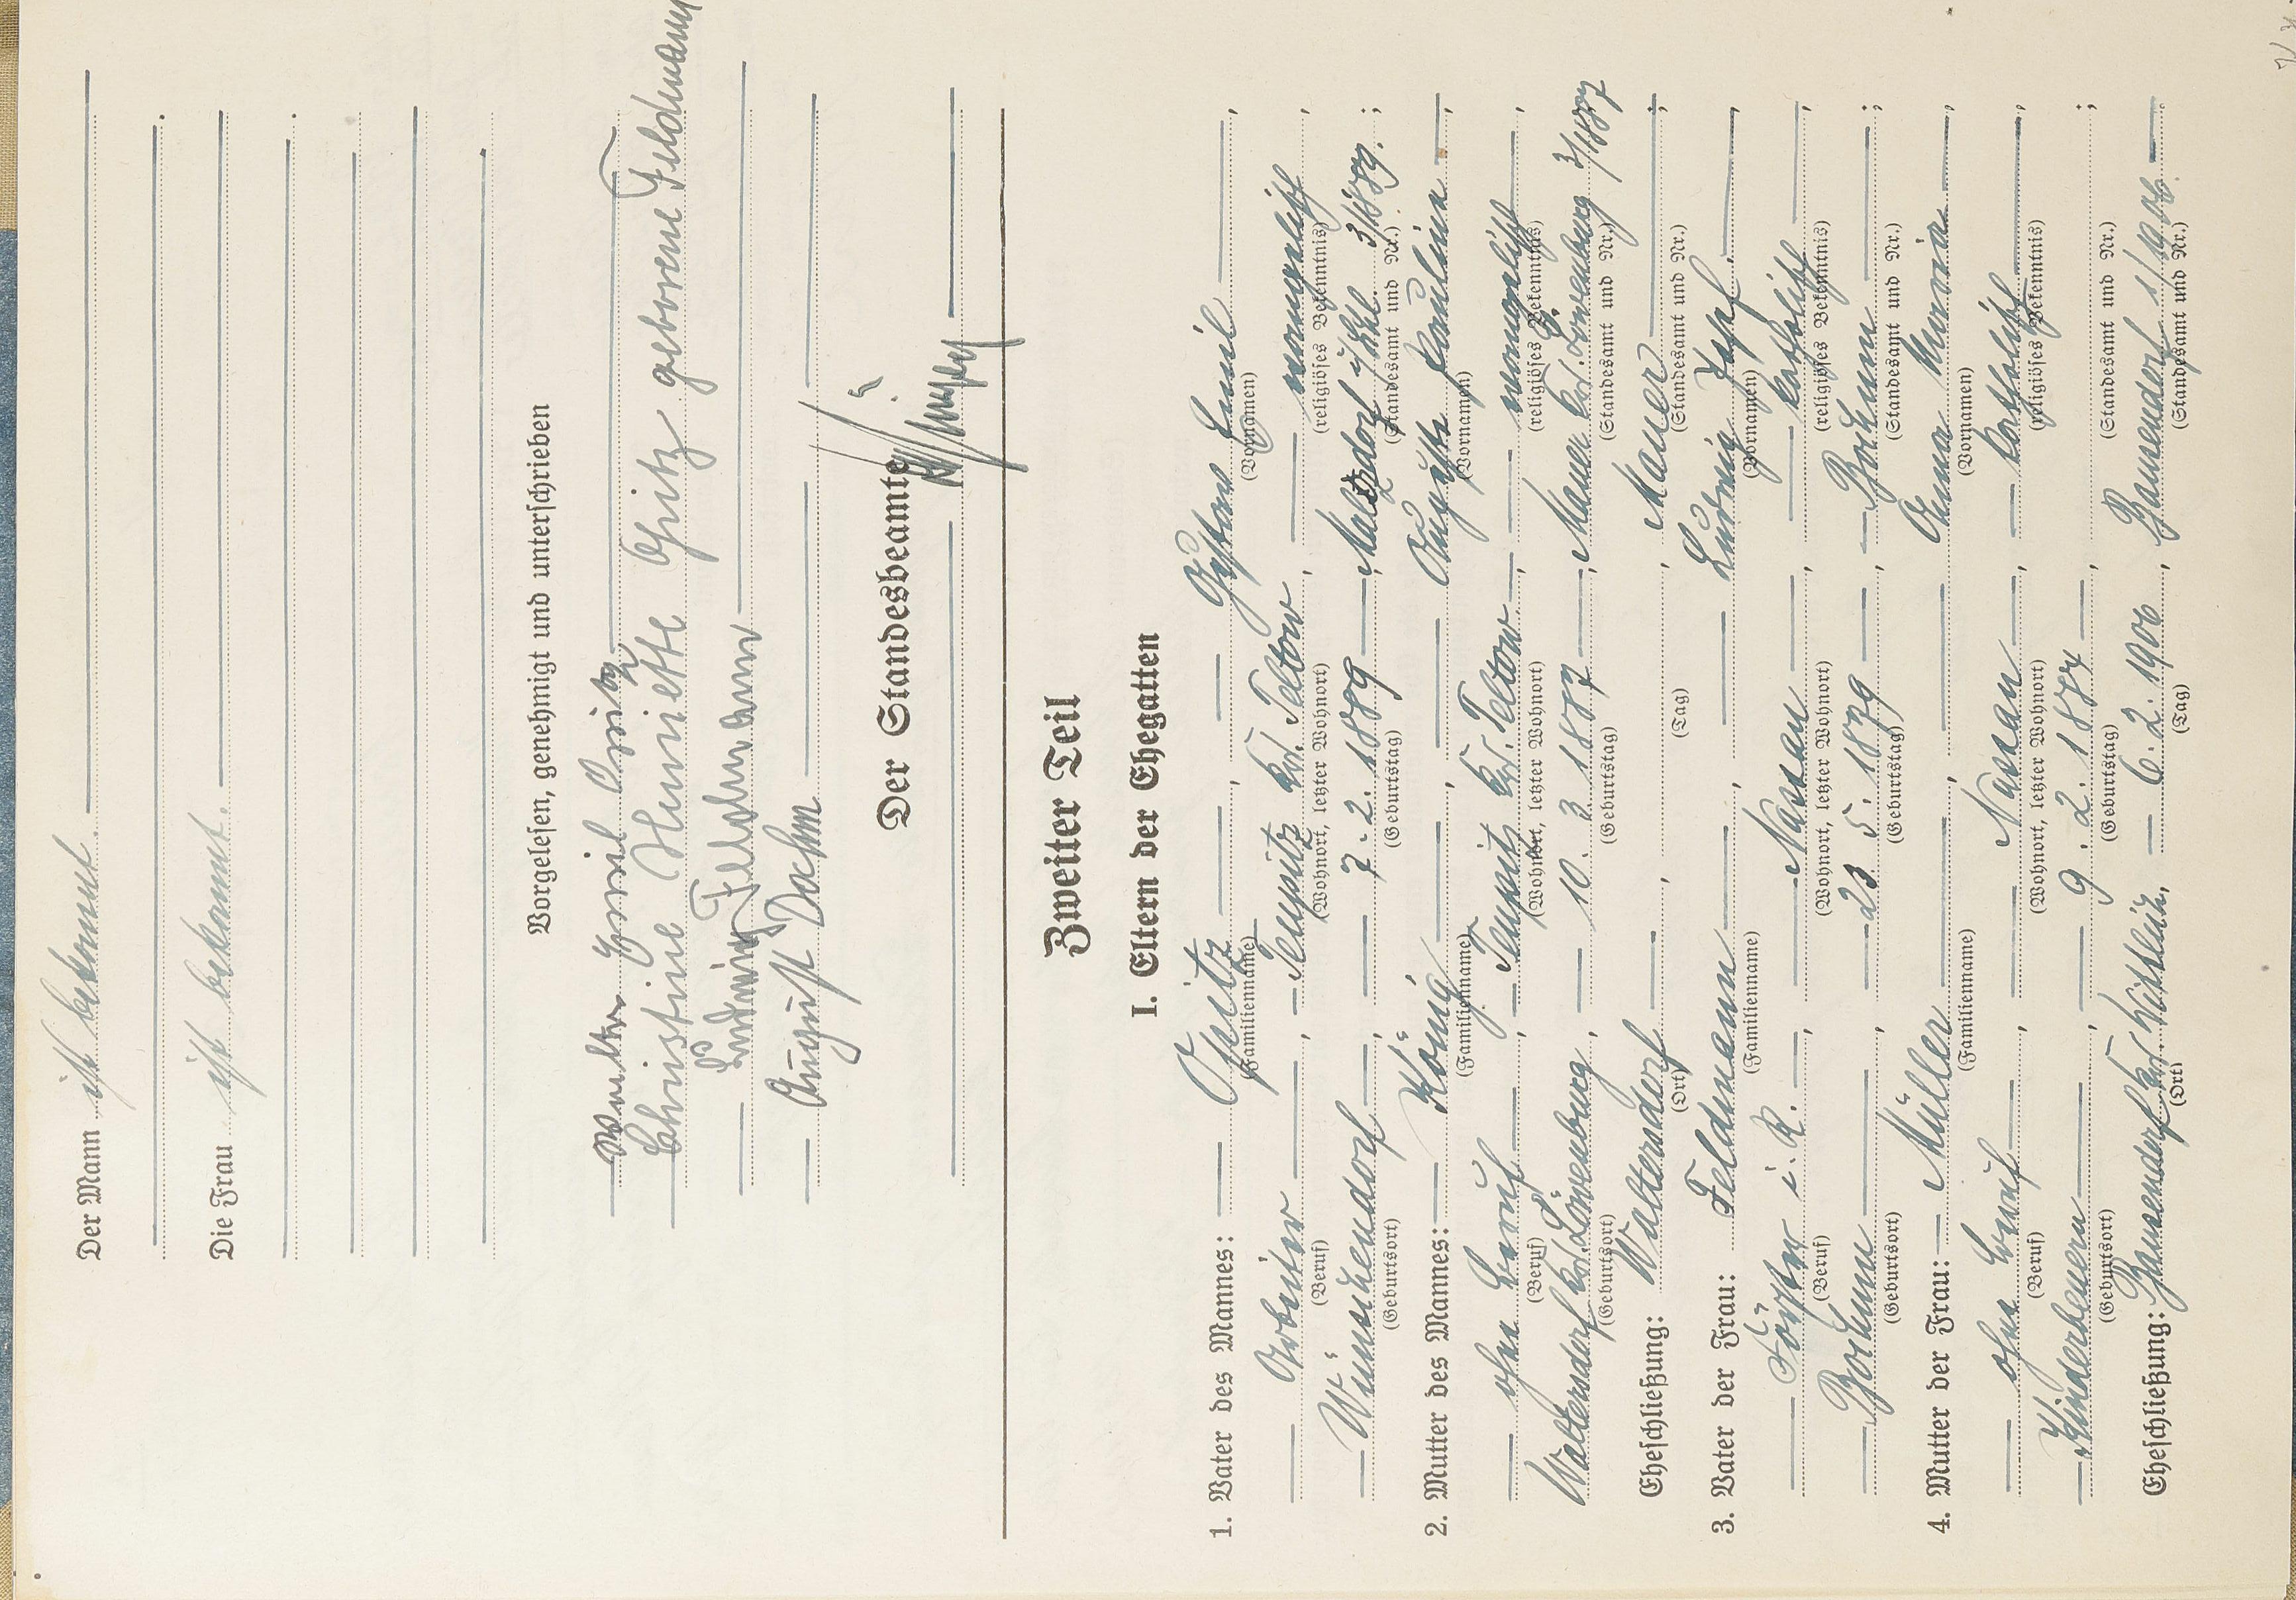 Der Mann ist bekannt.
Die Frau ist bekannt.
Vorgelesen, genehmigt und unterschrieben
Walter Emil Opitz
Christine Henriette Opitz geborene Feldmann
Ludwig Feldmann
August Dahm
Der Standesbeamte
Zweiter Teil
I. Eltern der Ehegatten
1. Vater des Mannes: Opitz, Gustav Emil,
(Familienname) (Vornamen)
Arbeiter, Teupitz Krs. Teltow, evangelisch,
(Beruf) (Wohnort, letzter Wohnort) (religiöses Bekenntnis)
Wünschendorf, 7. 2. 1889, 3/1889.;
(Geburtsort) (Geburtstag) (Standesamt und Nr.)
2. Mutter des Mannes: König, Auguste Pauline,
(Familienname) (Vornamen)
ohne Beruf, Teupitz Krs. Teltow, evangelisch,
(Beruf) (Wohnort, letzter Wohnort) (religiöses Bekenntnis)
Waltersdorf Krs. Löwenburg, 10. 3. 1887, Mauer Krs. Löwenberg 7/1887
(Geburtsort) (Geburtstag) (Standesamt und Nr.)
Eheschließung: Waltersdorf, Mauer;
(Ort) (Tag) (Standesamt und Nr.)
3. Vater der Frau: Feldmann, Ludwig Josef,
(Familienname) (Vornamen)
Förster i. R., Nassau, katholisch,
(Beruf) (Wohnort, letzter Wohnort) (religiöses Bekenntnis)
Bochum, 23. 5. 1879, Bochum;
(Geburtsort) (Geburtstag) (Standesamt und Nr.)
4. Mutter der Frau: Müller, Anna Maria,
(Familienname) (Vornamen)
ohne Beruf, Nassau, katholisch,
(Beruf) (Wohnort, letzter Wohnort) (religiöses Bekenntnis)
Kinderbeuern, 9. 2. 1884,;
(Geburtsort) (Geburtstag) (Standesamt und Nr.)
Eheschließung: Bausendorf Krs. Wittlich, 6. 2. 1906, Bausendorf 1/1906.
(Ort) (Tag) (Standesamt und Nr.)